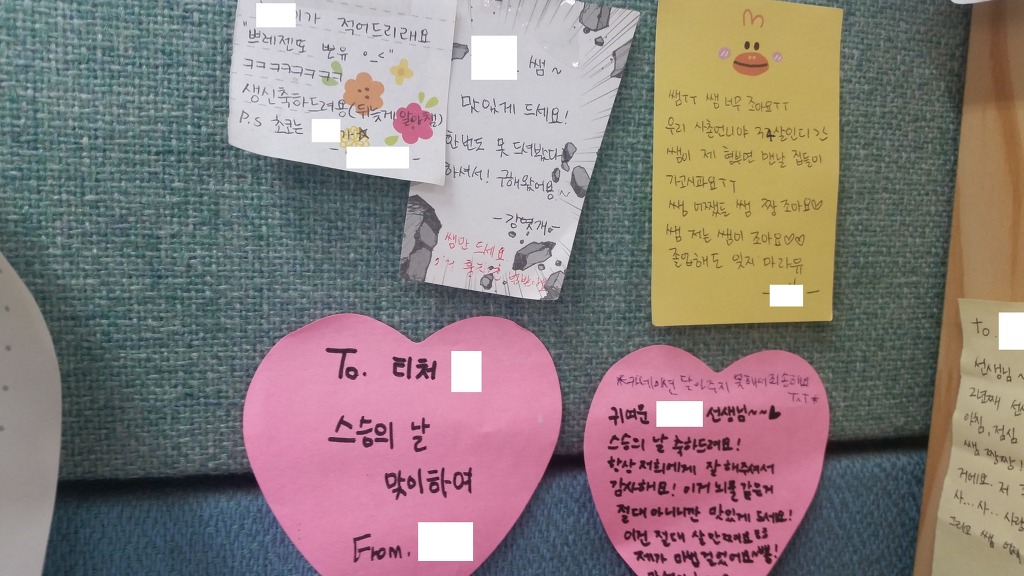 가 적어드리래요
"뽀레젠또 뽀유 o_<"
ㅋㅋㅋㅋㅋㅋㅋ
생신축하드려용(뒤늦게 알아챔)
P.S 쵸코는
쌤~
맛있게 드세요!
한번도 못 드셔봤다
하셔서! 구해왔어용~
쌤만 드세요
쌤ㅜㅜ 쌤 너무 조아요ㅜㅜ
우리 사촌언니야
쌤이 제 형부면 맨날 집들이
가고시퍼요ㅜㅜ
쌤 어쨌든 쌤 짱 조아요♡
쌤 저는 쌤이 조아요♡♡
졸업해도 잊지 마라유
To. 티처
스승의 날
맞이하여
From.
*카네이션 달아주지 못해서 죄송해요
TㅅT*
귀여운 선생님~~♥
스승의 날 축하드려요!
항상 저희에게 잘 해주셔서
감사해요! 이거 뇌물 같은거
절대 아니니깐 맛있게 드세요!
이건 절대 살 안쪄요
제가 마법 걸었어요~뿅!
To
선생님~
2년째
아침, 점심
쌤 짱짱!
거에요 저
사...사..사랑
그리고 쌤